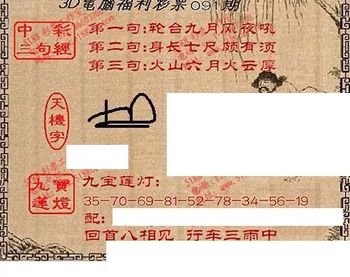 3D電腦福利彩票091期
中彩
三句經
第一句:轮台九月风夜吼
第二句:身长七尺颇有须
第三句:火山六月火云厚
天機字
九寶
蓮燈
九宝莲灯:
35-70-69-81-52-78-34-56-19
配:
回首八相见 行车三雨中